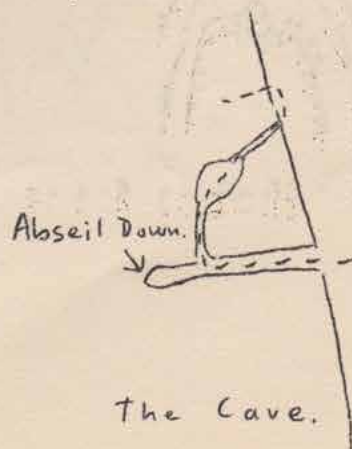 Abseil Down.
the Cave.